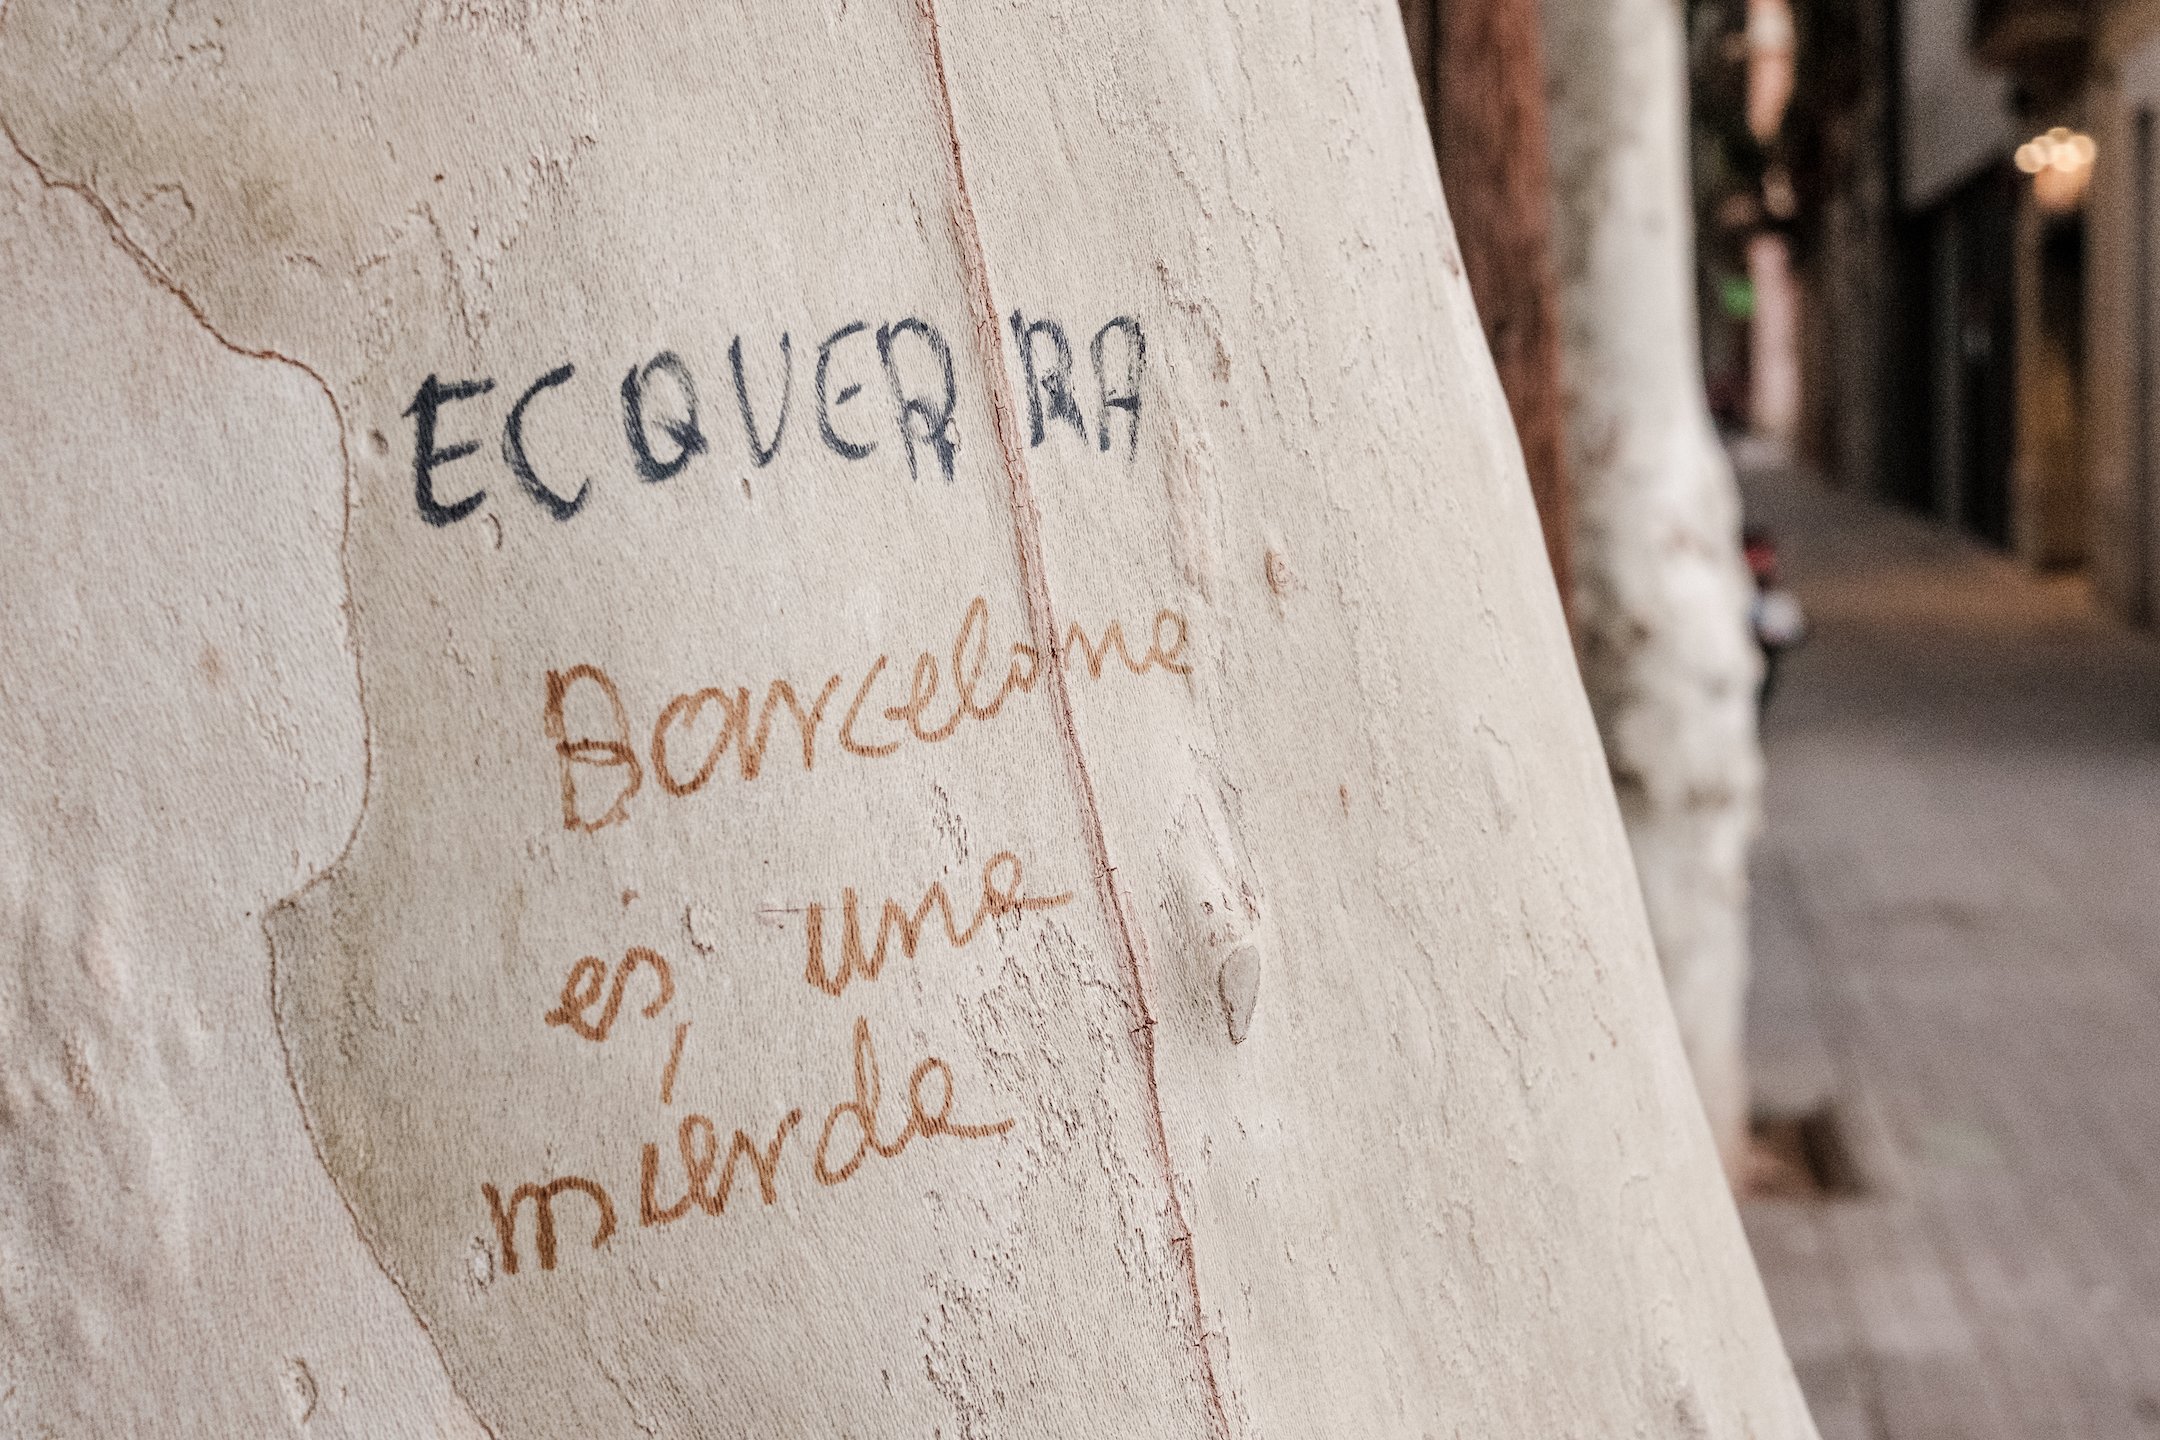 ECQUERRA
Barcelona
es una
mierda